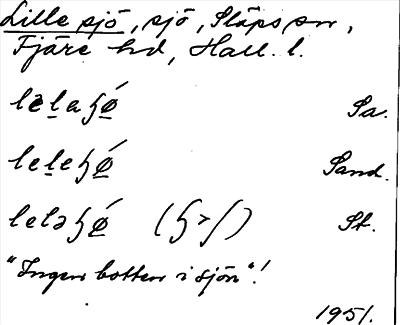 Lille sjö, sjö, Släps sn,
Fjäre hd, Hall. l.
lelaɧǿ Sa.
leleɧǿ Sand.
leləɧǿ (ɧ>ʃ) St.
"Ingen botten i sjön"!
1951.